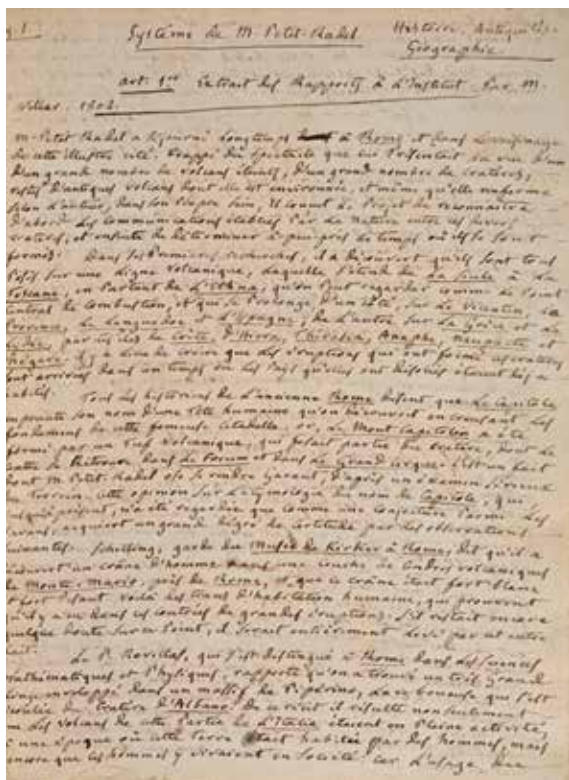 Système de M. Petit-Radel
Histoire, Antiquités.
Géographie
art. 1er Extrait des Rapports à l'Institut Par M.
1802.
M. Petit Radel a séjourné longtemps à Rome et dans le voisinage
de cette illustre cité. frappé du spectacle que lui présentait la vue d'un
d'un grand nombre de volcans éteints, d'un grand nombre de cratères,
restes d'antiques volcans dont elle est environnée, et même qu'elle renferme
selon l'auteur, dans son propre sein, il conçut le Projet de reconnaître
d'abord les communications établies Par la Nature entre ces divers
cratères, et ensuite de déterminer à peu-près le temps où ils se sont
formés. Dans ses Premières recherches, il a découvert qu'ils sont tous
sur une Ligne Volcanique, laquelle s'étend de la Sicile à la
Toscane, en Partant de L'Ethna, qu'on Peut regarder comme le Point
central de combustion, et qui se Prolonge d'un côté, sur Le Vicentin, la
Provence, Le Languedoc et L'Espagne; de l'autre sur La Grèce et
par les îles de Anaphe,
il y a lieu de croire que les éruptions qui ont formé ces cratères
sont arrivées dans un temps où les Pays qu'elles ont désolés étaient
habités. Tous les historiens de l'ancienne Rome disent que Le Capitole
emprunta son nom d'une tête humaine qu'on découvrit en creusant les
fondemens de cette fameuse citadelle. or, Le Mont Capitolin a été
formé par un tuf volcanique, qui faisait partie du cratère, dont le
centre se retrouve dans Le Forum et dans Le Grand cirque. c'est un fait
dont M. Petit Radel ose se rendre Garant, d'après un examen sérieux
du terrein. cette opinion sur l'étymologie du nom de Capitole, qui
jusqu'à présent, n'a été regardée que comme une conjecture Parmi les
savans, acquiert un grand degré de certitude par les observations
suivantes. garde du Musée de Kirker à Rome, dit qu'il a
découvert un crâne d'homme sous une couche de cendres volcaniques
de Monte-Mario, près de Rome, et que ce crâne était fort blanc
et fort pesant. voilà des traces d'habitation humaine, qui prouvent
qu'il y a eu dans ces contrées de grandes éruptions. s'il restait encore
quelque doute sur ce Point, il serait entièrement levé par cet autre
fait.
Le P. Revillas, qui s'est distingué à Rome dans les sciences
mathématiques et Physiques, rapporte qu'on a trouvé un très grand
enveloppé dans un massif de Pépérino, lave boueuse qui s'est
du cratère d'Albano. De ce récit il résulte non seulement
que les volcans de cette Partie de L'Italie étaient en Pleine activité,
à une époque où cette terre était habitée par des hommes, mais
encore que les hommes y vivaient en société car l'usage des